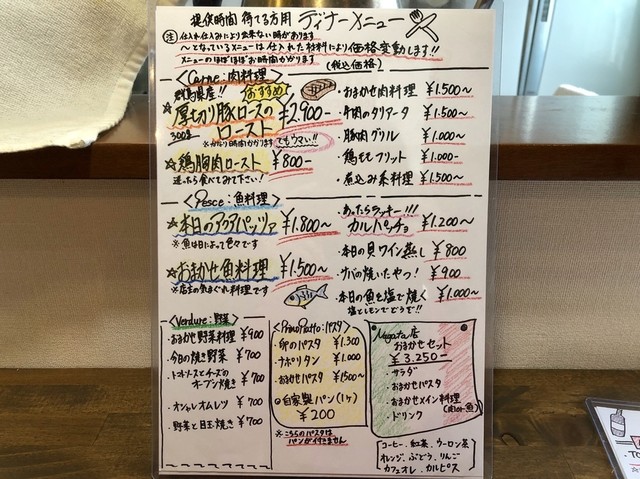 提供時間 待てる方用 ディナーメニュー
注 仕入れ仕込みにより出来ない時があります
～となっているメニューは仕入れた材料により価格変動します!!
メニューのほぼほぼお時間かかります (税込価格)
<Carne:肉料理>
群馬県産!! おすすめ
☆厚切り豚ロースの
300g ロースト ¥2.900-
※かなり時間かかります でもウマい!!
☆鶏胸肉ロースト ¥800-
迷ったら食べてみて下さい!
・おまかせ肉料理 ¥1.500～
・牛肉のタリアータ ¥1.500～
・豚肉グリル ¥1.000～
・鶏ももフリット ¥1.000-
・煮込み系料理 ¥1.500～
<Pesce:魚料理>
☆本日のアクアパッツァ ¥1.800～
※魚は日によって色々です
☆おまかせ魚料理 ¥1.500～
※店主の気まぐれ料理です
あったらラッキー!!!
カルパッチョ ¥1.200～
・本日の貝ワイン蒸し ¥800
・サバの焼いたやつ! ¥900
・本日の魚を塩で焼く ¥1.000～
塩とレモンでどうぞ!!
<Verdure:野菜>
・おまかせ野菜料理 ¥900
・今日の焼き野菜 ¥700
・トマトソースとチーズの
オーブン焼き ¥700
・オシャレオムレツ ¥700
・野菜と目玉焼き ¥700
<PrimoPiatto:パスタ>
・卵のパスタ ¥1.300
・ナポリタン ¥1.000
・おまかせパスタ ¥1500～
◎自家製パン(1ヶ)
¥200
※こちらのパスタは
パンが付きません
Mugata店
おまかせセット
¥3.250-
・サラダ
・おまかせパスタ
・おまかせメイン料理
(肉or魚)
・ドリンク
コーヒー、紅茶、ウーロン茶
オレンジ、ぶどう、りんご
カフェオレ、カルピス